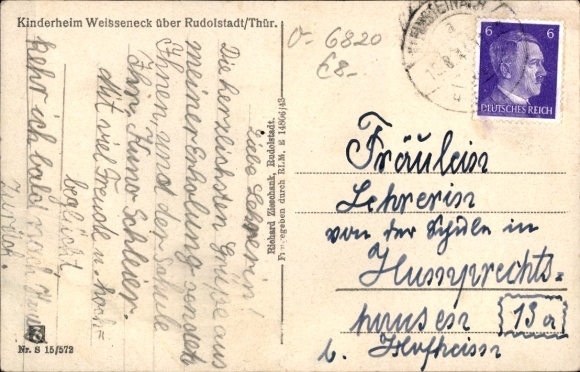 Kinderheim Weisseneck über Rudolstadt/Thür.
O- 6820
€8-
6 6
DEUTSCHES REICH
Liebe Lehrerin!
Die herzlichsten Grüße aus
meiner Erholung sendet
Ihnen und der Schule
Ihr Kuno Schleier.
Mit viel Freude u. hoch-
beglückt
kehr ich bald nach
zurück.
Richard Zieschank, Rudolstadt.
Freigegeben durch RLM. E 14806/43
Fräulein
Lehrerin
von der Schule in
Humprechts-
hausen 13a
b. Hofheim
Nr. S 15/572